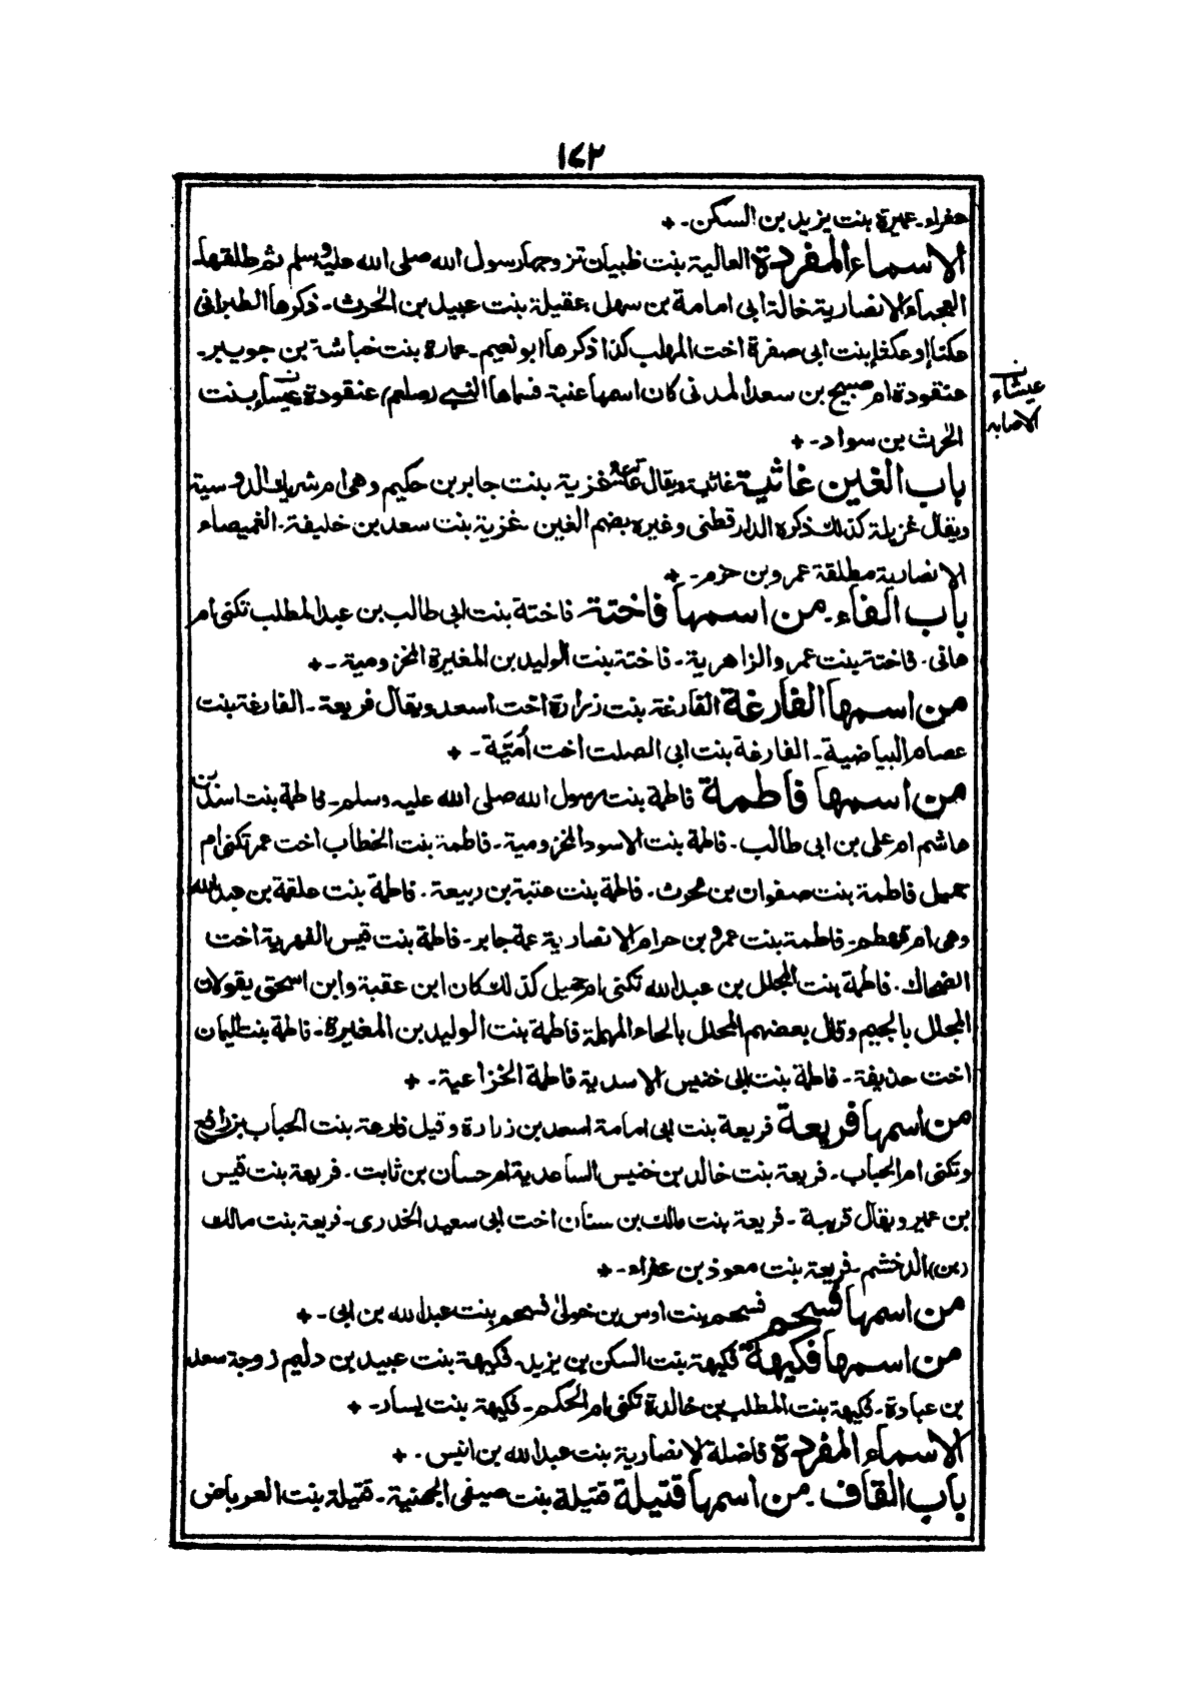 ١٤٢
عفراء۔ عميرة بنت يزيد بن السكن۔ ٭
الاسماء المفردة العالية بنت ظبيان تزوجها رسول الله صلى الله عليه وسلم ثم طلقها۔
العجماء الانصارية خالة ابى امامة بن سهل عقيلة بنت عبيد بن الحٰرث۔ ذكرها الطبرانى
عكناء او عكناء بنت ابى صفرة اخت المهلب كذا ذكرها ابو نعيم۔ عمارة بنت خباشة بن جويبر۔
عنقودة ام صبيح بن سعد المدنى كان اسمها عنبة فسماها النبى (صلعم) عنقودة عيساء بنت
الحٰرث بن سواد۔ ٭
عيشاء
الاصابه
باب الغين غاثية غاثية ويقال غزية بنت جابر بن حكيم وهى ام شريك الدوسية
ويقال غزيلة كذلك ذكره الدارقطنى وغيره بضم الغين۔ غزية بنت سعد بن خليفة۔ الغميصاء
الانصارية مطلقة عمرو بن حزم۔ ٭
باب الفاء۔ من اسمها فاختة فاختة بنت ابى طالب بن عبد المطلب تكنى ام
هانى۔ فاختة بنت عمرو الزاهرية۔ فاختة بنت الوليد بن المغيرة المخزومية۔ ٭
من اسمها الفارغة الفارغة بنت زرارة اخت اسعد ويقال فريعة۔ الفارغة بنت
عصام البياضية۔ الفارغة بنت ابى الصلت اخت اُمَيَّة۔ ٭
من اسمها فاطمة فاطمة بنت رسول الله صلى الله عليه وسلم۔ فاطمة بنت اسد بن
هاشم ام على بن ابى طالب۔ فاطمة بنت الاسود المخزومية۔ فاطمة بنت الخطاب اخت عمر تكنى ام
جميل فاطمة بنت صفوان بن محرث۔ فاطمة بنت عتبة بن ربيعة۔ فاطمة بنت علقمة بن عبد الله
وهى ام قهطم۔ فاطمة بنت عمرو بن حرام الانصارية عمة جابر۔ فاطمة بنت قيس الفهرية اخت
الضحاك۔ فاطمة بنت المجلل بن عبد الله تكنى ام جميل كذلك كان ابن عقبة وابن اسحٰق يقولان
المجلل بالجيم وقال بعضهم المحلل بالحاء المهملة فاطمة بنت الوليد بن المغيرة۔ فاطمة بنت اليمان
اخت حذيفة۔ فاطمة بنت ابى خنيس الاسدية فاطمة الخزاعية۔ ٭
من اسمها فريعة فريعة بنت ابى امامة اسعد بن زرارة وقيل فارعة بنت الحباب بن رافع
وتكنى ام الحباب۔ فريعة بنت خالد بن خنيس الساعدية ام حسان بن ثابت۔ فريعة بنت قيس
بن عمير ويقال قريبة۔ فريعة بنت مالك بن سنان اخت ابى سعيد الخدرى۔ فريعة بنت مالك
(بن) الدخشم۔ فريعة بنت معوذ بن عفراء۔ ٭
من اسمها فسحم فسحم بنت اوس بن خولىٰ فسحم بنت عبد الله بن ابى۔ ٭
من اسمها فكيهة فكيهة بنت السكن بن يزيد۔ فكيهة بنت عبيد بن دليم زوجة سعد
بن عبادة۔ فكيهة بنت المطلب بن خالدة تكنى ام الحكم۔ فكيهة بنت يسار۔ ٭
الاسماء المفردة فاضلة الانصارية بنت عبد الله بن انيس۔ ٭
باب القاف۔ من اسمها قتيلة قتيلة بنت صيفى الجهنية۔ قتيلة بنت العرباض